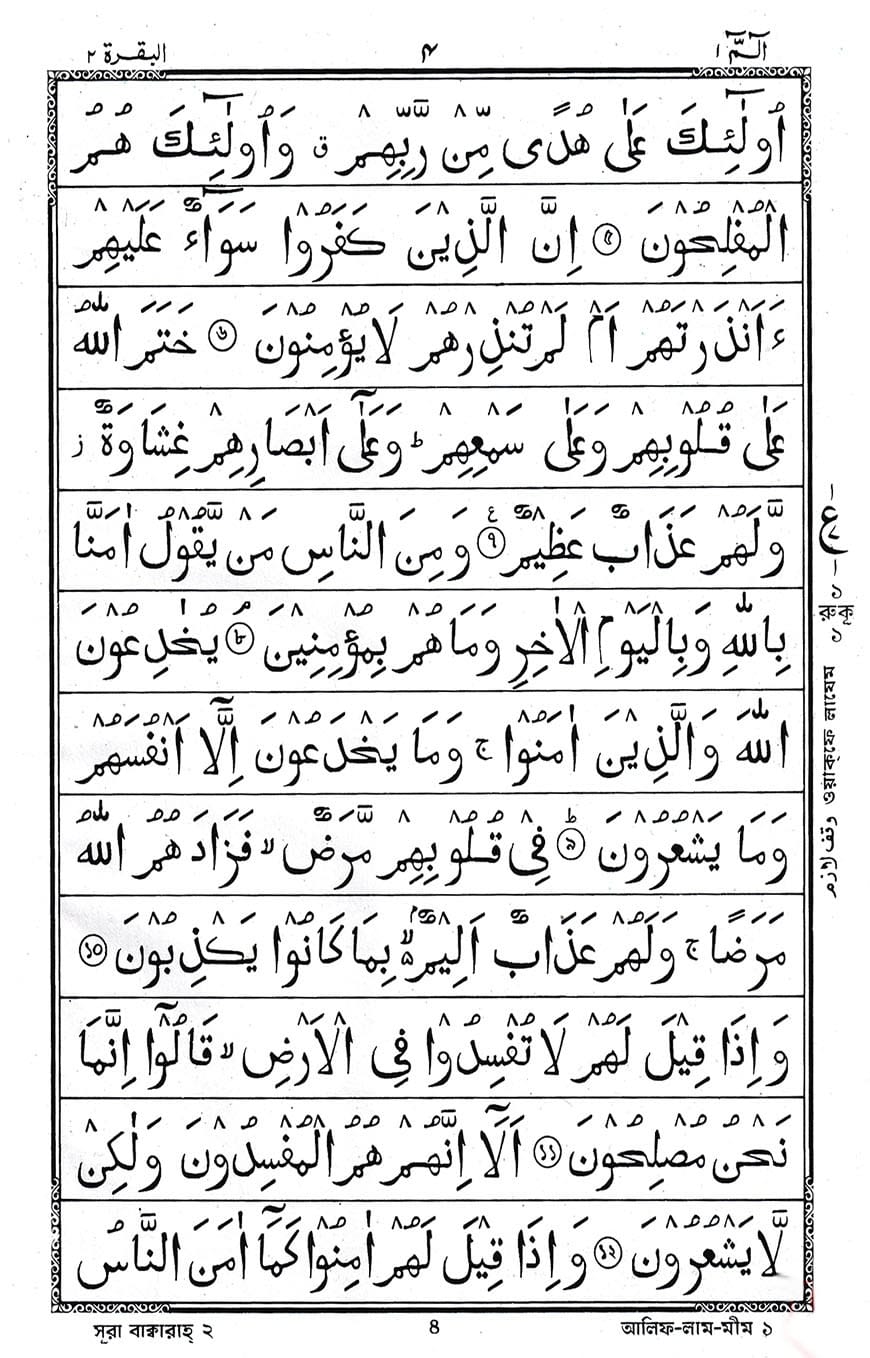 الٓمّٓ ١
٤
البقرة ٢
اُولٰٓئِكَ عَلٰى هُدًى مِّنْ رَّبِّهِمْ ق وَاُولٰٓئِكَ هُمُ
الْمُفْلِحُوْنَ ۝৫ اِنَّ الَّذِيْنَ كَفَرُوْا سَوَآءٌ عَلَيْهِمْ
ءَاَنْذَرْتَهُمْ اَمْ لَمْ تُنْذِرْهُمْ لَا يُؤْمِنُوْنَ ۝৬ خَتَمَ اللّٰهُ
عَلٰى قُلُوْبِهِمْ وَعَلٰى سَمْعِهِمْ ط وَعَلٰٓى اَبْصَارِهِمْ غِشَاوَةٌ ز
وَّلَهُمْ عَذَابٌ عَظِيْمٌ ۝৭ ع وَمِنَ النَّاسِ مَنْ يَّقُوْلُ اٰمَنَّا
بِاللّٰهِ وَبِالْيَوْمِ الْاٰخِرِ وَمَا هُمْ بِمُؤْمِنِيْنَ ۝৮ م يُخٰدِعُوْنَ
اللّٰهَ وَالَّذِيْنَ اٰمَنُوْا ج وَمَا يَخْدَعُوْنَ اِلَّآ اَنْفُسَهُمْ
وَمَا يَشْعُرُوْنَ ۝৯ ط فِيْ قُلُوْبِهِمْ مَّرَضٌ لا فَزَادَهُمُ اللّٰهُ
مَرَضًا ج وَلَهُمْ عَذَابٌ اَلِيْمٌ ۢ لا بِمَا كَانُوْا يَكْذِبُوْنَ ۝১০
وَاِذَا قِيْلَ لَهُمْ لَا تُفْسِدُوْا فِى الْاَرْضِ لا قَالُوْٓا اِنَّمَا
نَحْنُ مُصْلِحُوْنَ ۝১১ اَلَآ اِنَّهُمْ هُمُ الْمُفْسِدُوْنَ وَلٰكِنْ
لَّا يَشْعُرُوْنَ ۝১২ وَاِذَا قِيْلَ لَهُمْ اٰمِنُوْا كَمَآ اٰمَنَ النَّاسُ
ع
১
রুকূ
১
وقف لازم ওয়াক্ফে লাযেম
সূরা বাক্বারাহ্ ২
৪
আলিফ-লাম-মীম ১